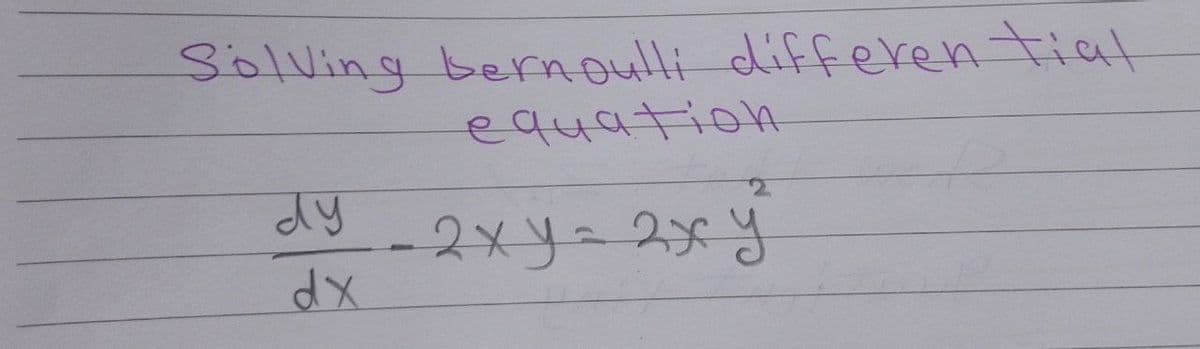 Solving bernoulli differential
equation
dy/dx - 2xy = 2xy²